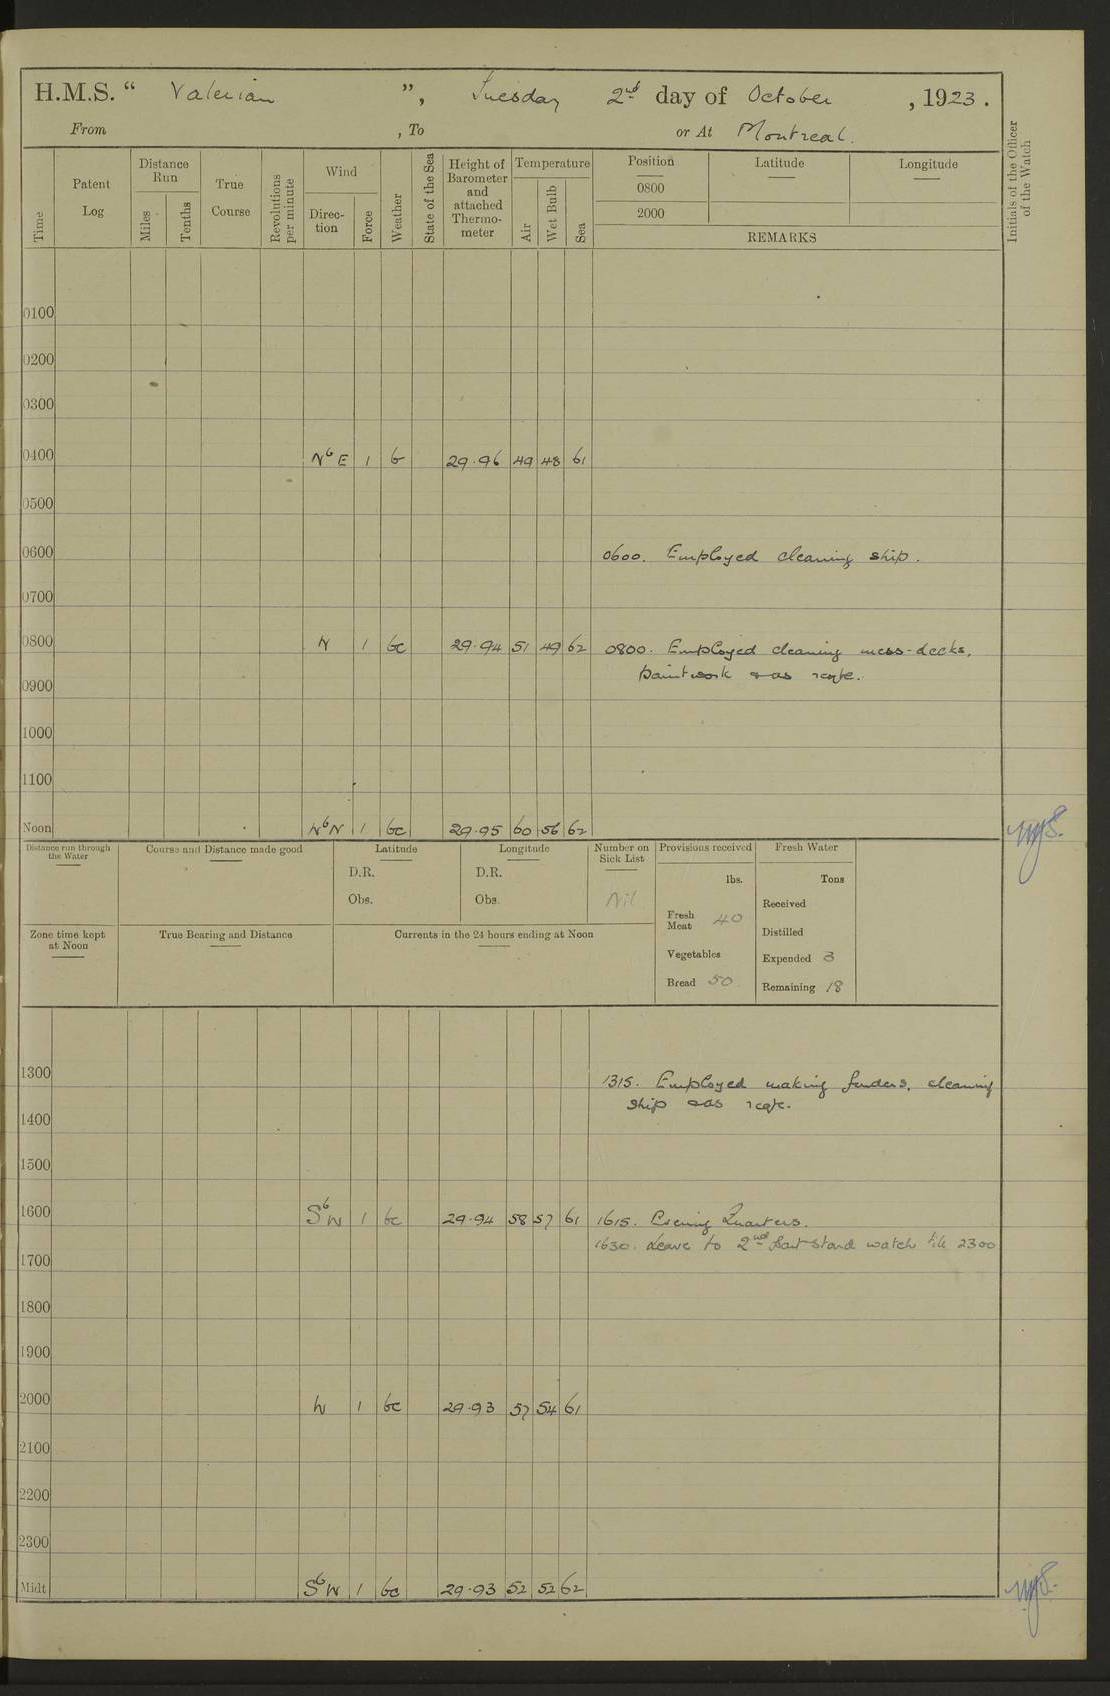 H.M.S. “ Valerian ”, Tuesday 2nd day of October , 1923 .
From , To or At Montreal.
Time
Patent Log
Distance Run
Miles
Tenths
True Course
Revolutions per minute
Wind
Direc- tion
Force
Weather
State of the Sea
Height of Barometer and attached Thermo- meter
Temperature
Air
Wet Bulb
Sea
Position Latitude Longitude
0800
2000
REMARKS
Initials of the Officer of the Watch
0100
0200
0300
0400 NbE 1 b 29.96 49 48 61
0500
0600 0600. Employed cleaning ship.
0700
0800 N 1 bc 29.94 51 49 62 0800. Employed cleaning mess-decks,
paintwork & as reqte.
0900
1000
1100
Noon 1 bc 29.95 60 56 62
Distance run through the Water
Course and Distance made good
Latitude
D.R.
Obs.
Longitude
D.R.
Obs.
Number on Sick List
Nil
Provisions received
lbs.
Fresh Meat 40
Vegetables
Bread 50
Fresh Water
Tons
Received
Distilled
Expended 3
Remaining 18
Zone time kept at Noon
True Bearing and Distance
Currents in the 24 hours ending at Noon
1300 1315. Employed making fenders, cleaning
ship & as reqte.
1400
1500
1600 SbW 1 bc 29.94 58 57 61 1615. Evening Quarters.
1630. Leave to 2nd part Stand watch till 2300
1700
1800
1900
2000 W 1 bc 29.93 57 54 61
2100
2200
2300
Midt SbW 1 bc 29.93 52 52 62